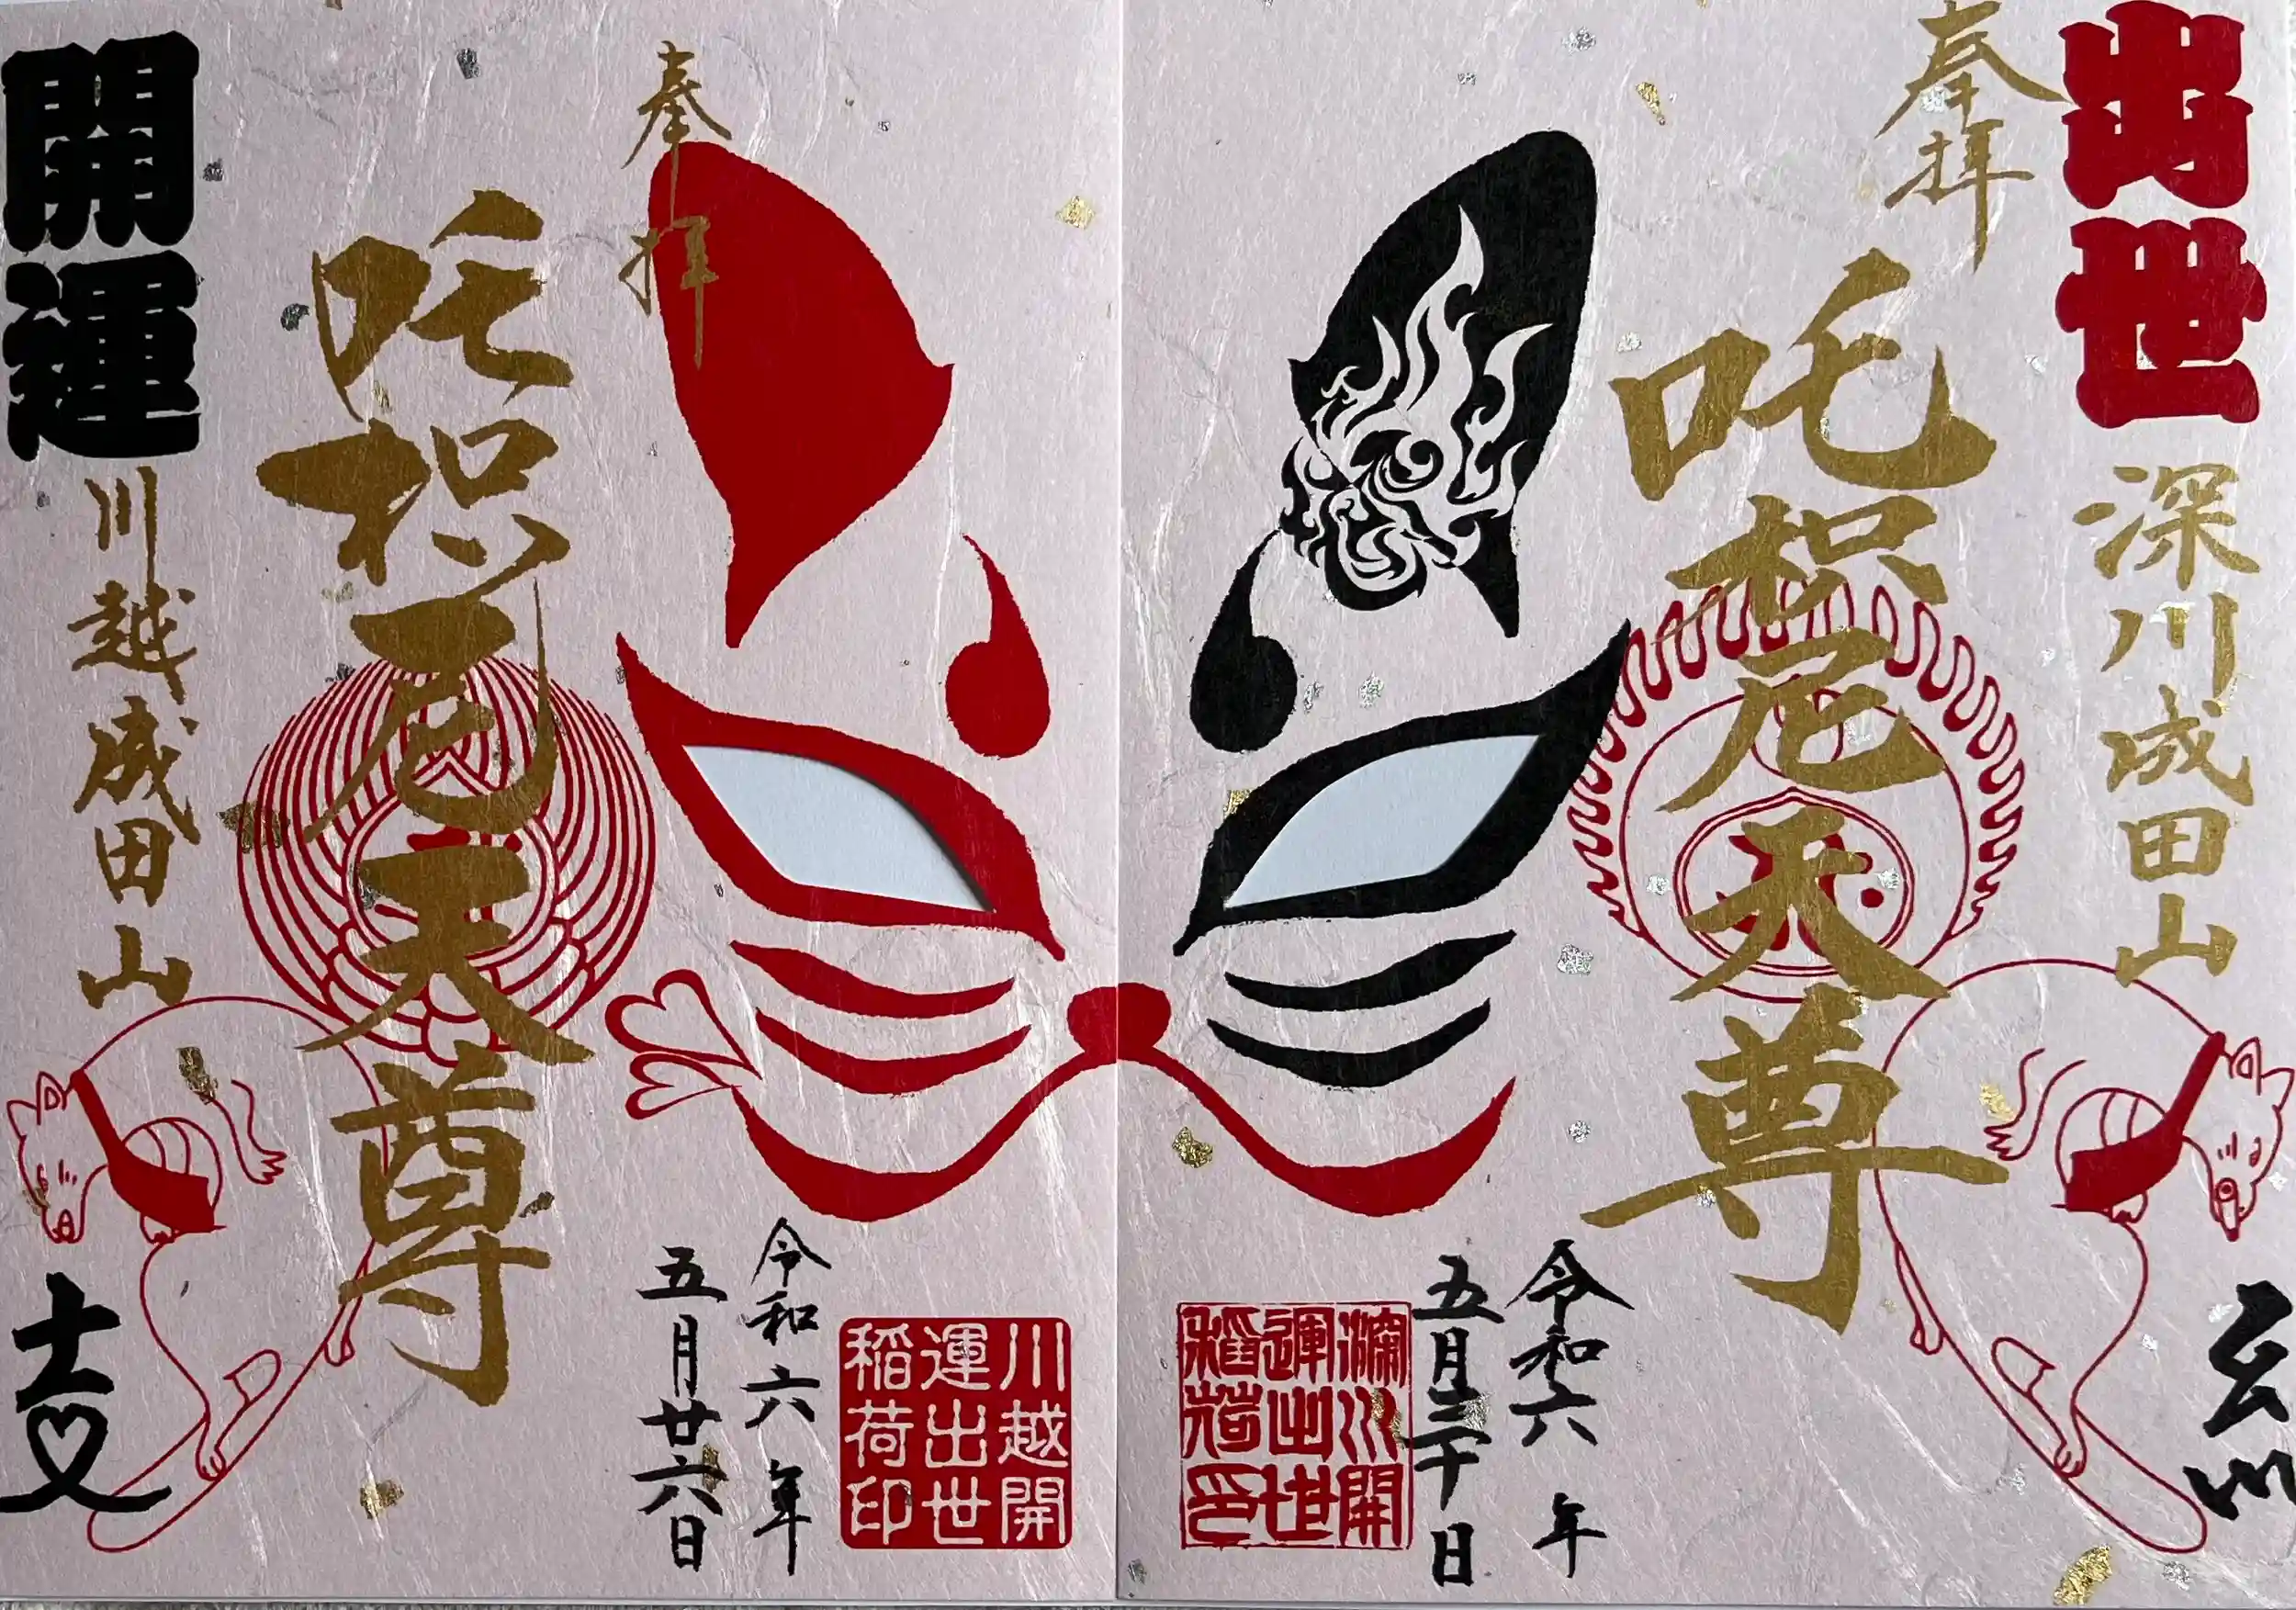 出世
深川成田山
奉拝
吒枳尼天尊
令和六年
五月三十日
深川開
運出世
稲荷印
奉拝
吒枳尼天尊
開運
川越成田山
令和六年
五月廿六日
川越開
運出世
稲荷印